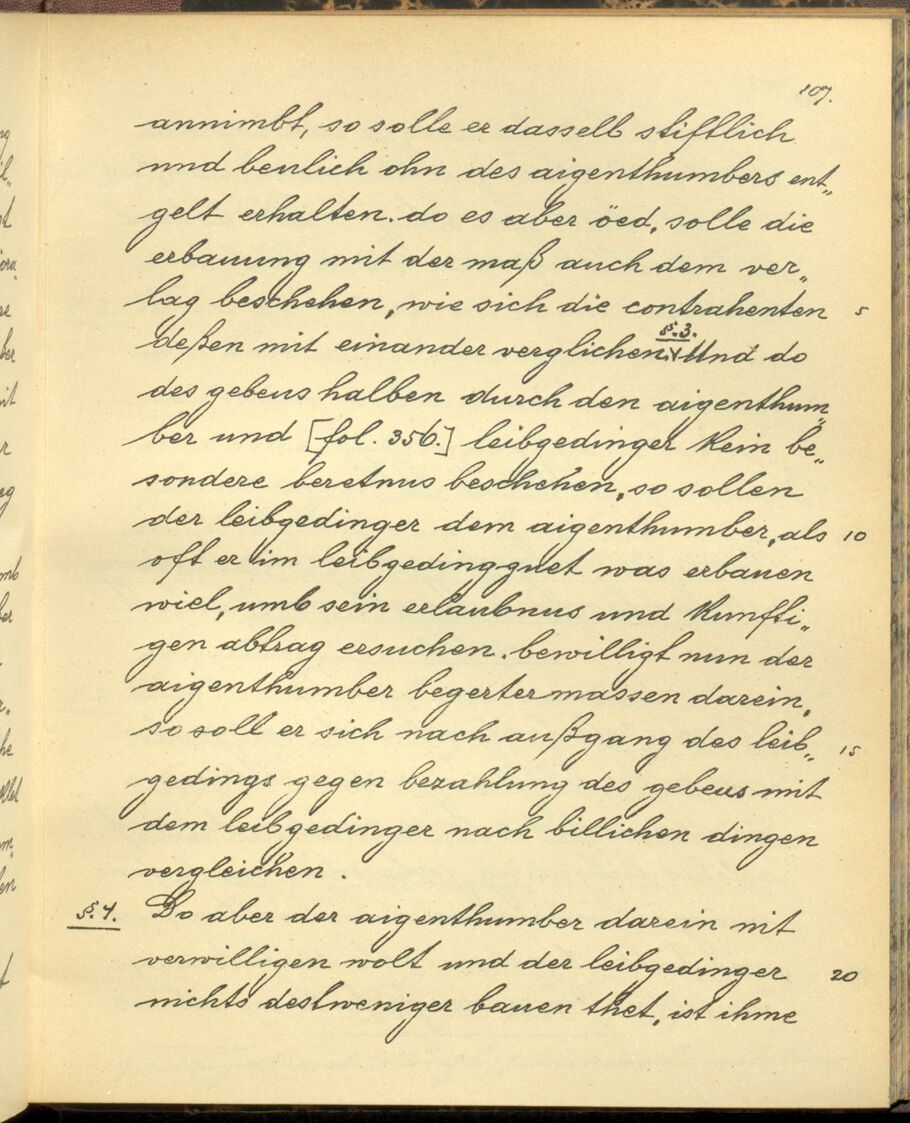 107.
annimbt, so solle er dasselb stifftlich
und beulich ohn des aigenthumbers ent„
gelt erhalten. do es aber öed, solle die
erbauung mit der maß auch dem ver„
lag beschehen, wie sich die contrahenten 5
deßen mit einander verglichen. §.3. Und do
des gebeus halben durch den aigenthum„
ber und [fol. 356.] leibgedinger kein be„
sondere beretnus beschehen, so sollen
der leibgedinger dem aigenthumber, als 10
oft er im leibgedingguet was erbauen
wiel, umb sein erlaubnus und kunfti„
gen abtrag ersuchen. bewilligt nun der
aigenthumber begertermassen darein,
so soll er sich nach außgang des leib„ 15
gedings gegen bezahlung des gebeus mit
dem leibgedinger nach billichen dingen
vergleichen.
§.4. Do aber der aigenthumber darein nit
verwilligen wolt und der leibgedinger 20
nichts destweniger bauen thet, ist ihme